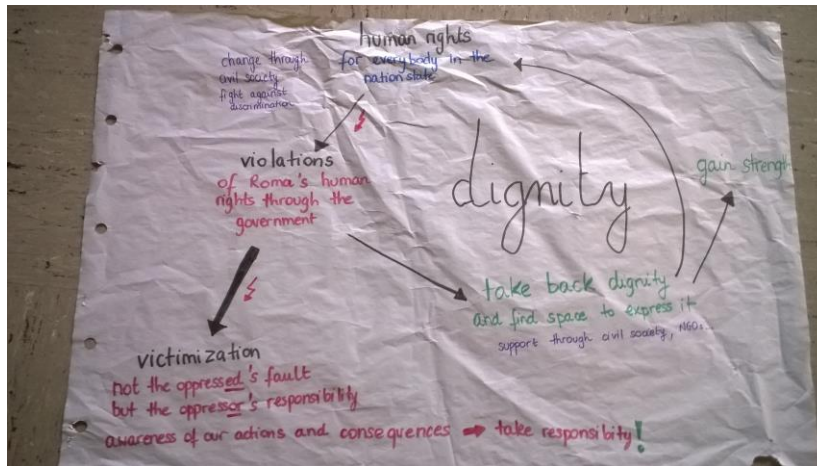 human rights
for everybody in the
nation state
change through
civil society
fight against
discrimination
violations
of Roma's human
rights through the
government
dignity
gain strengt
take back dignity
and find space to express it
support through civil society, NGOs...
victimization
not the oppressed's fault
but the oppressor's responsibility
awareness of our actions and consequences ➡ take responsibility!